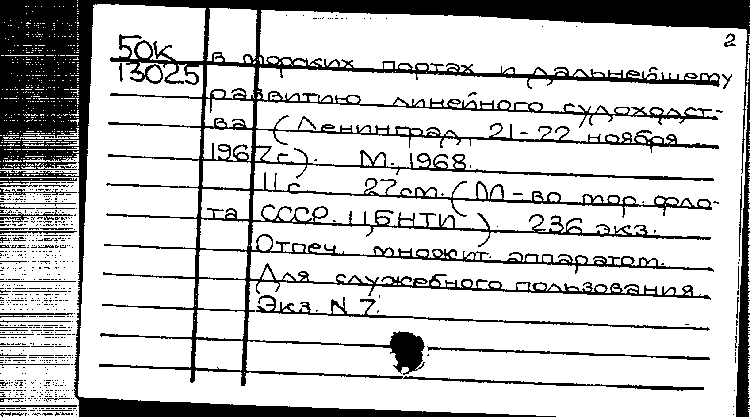 2
50к
13025
в морских портах и дальнейшему
развитию линейного судоходст-
ва (Ленинград, 21-22 ноября
1967 г.). М., 1968.
11 с. 27 см. (М-во мор. фло-
та СССР. ЦБНТИ). 236 экз.
Отпеч. множит. аппаратом.
Для служебного пользования.
Экз. N 7.